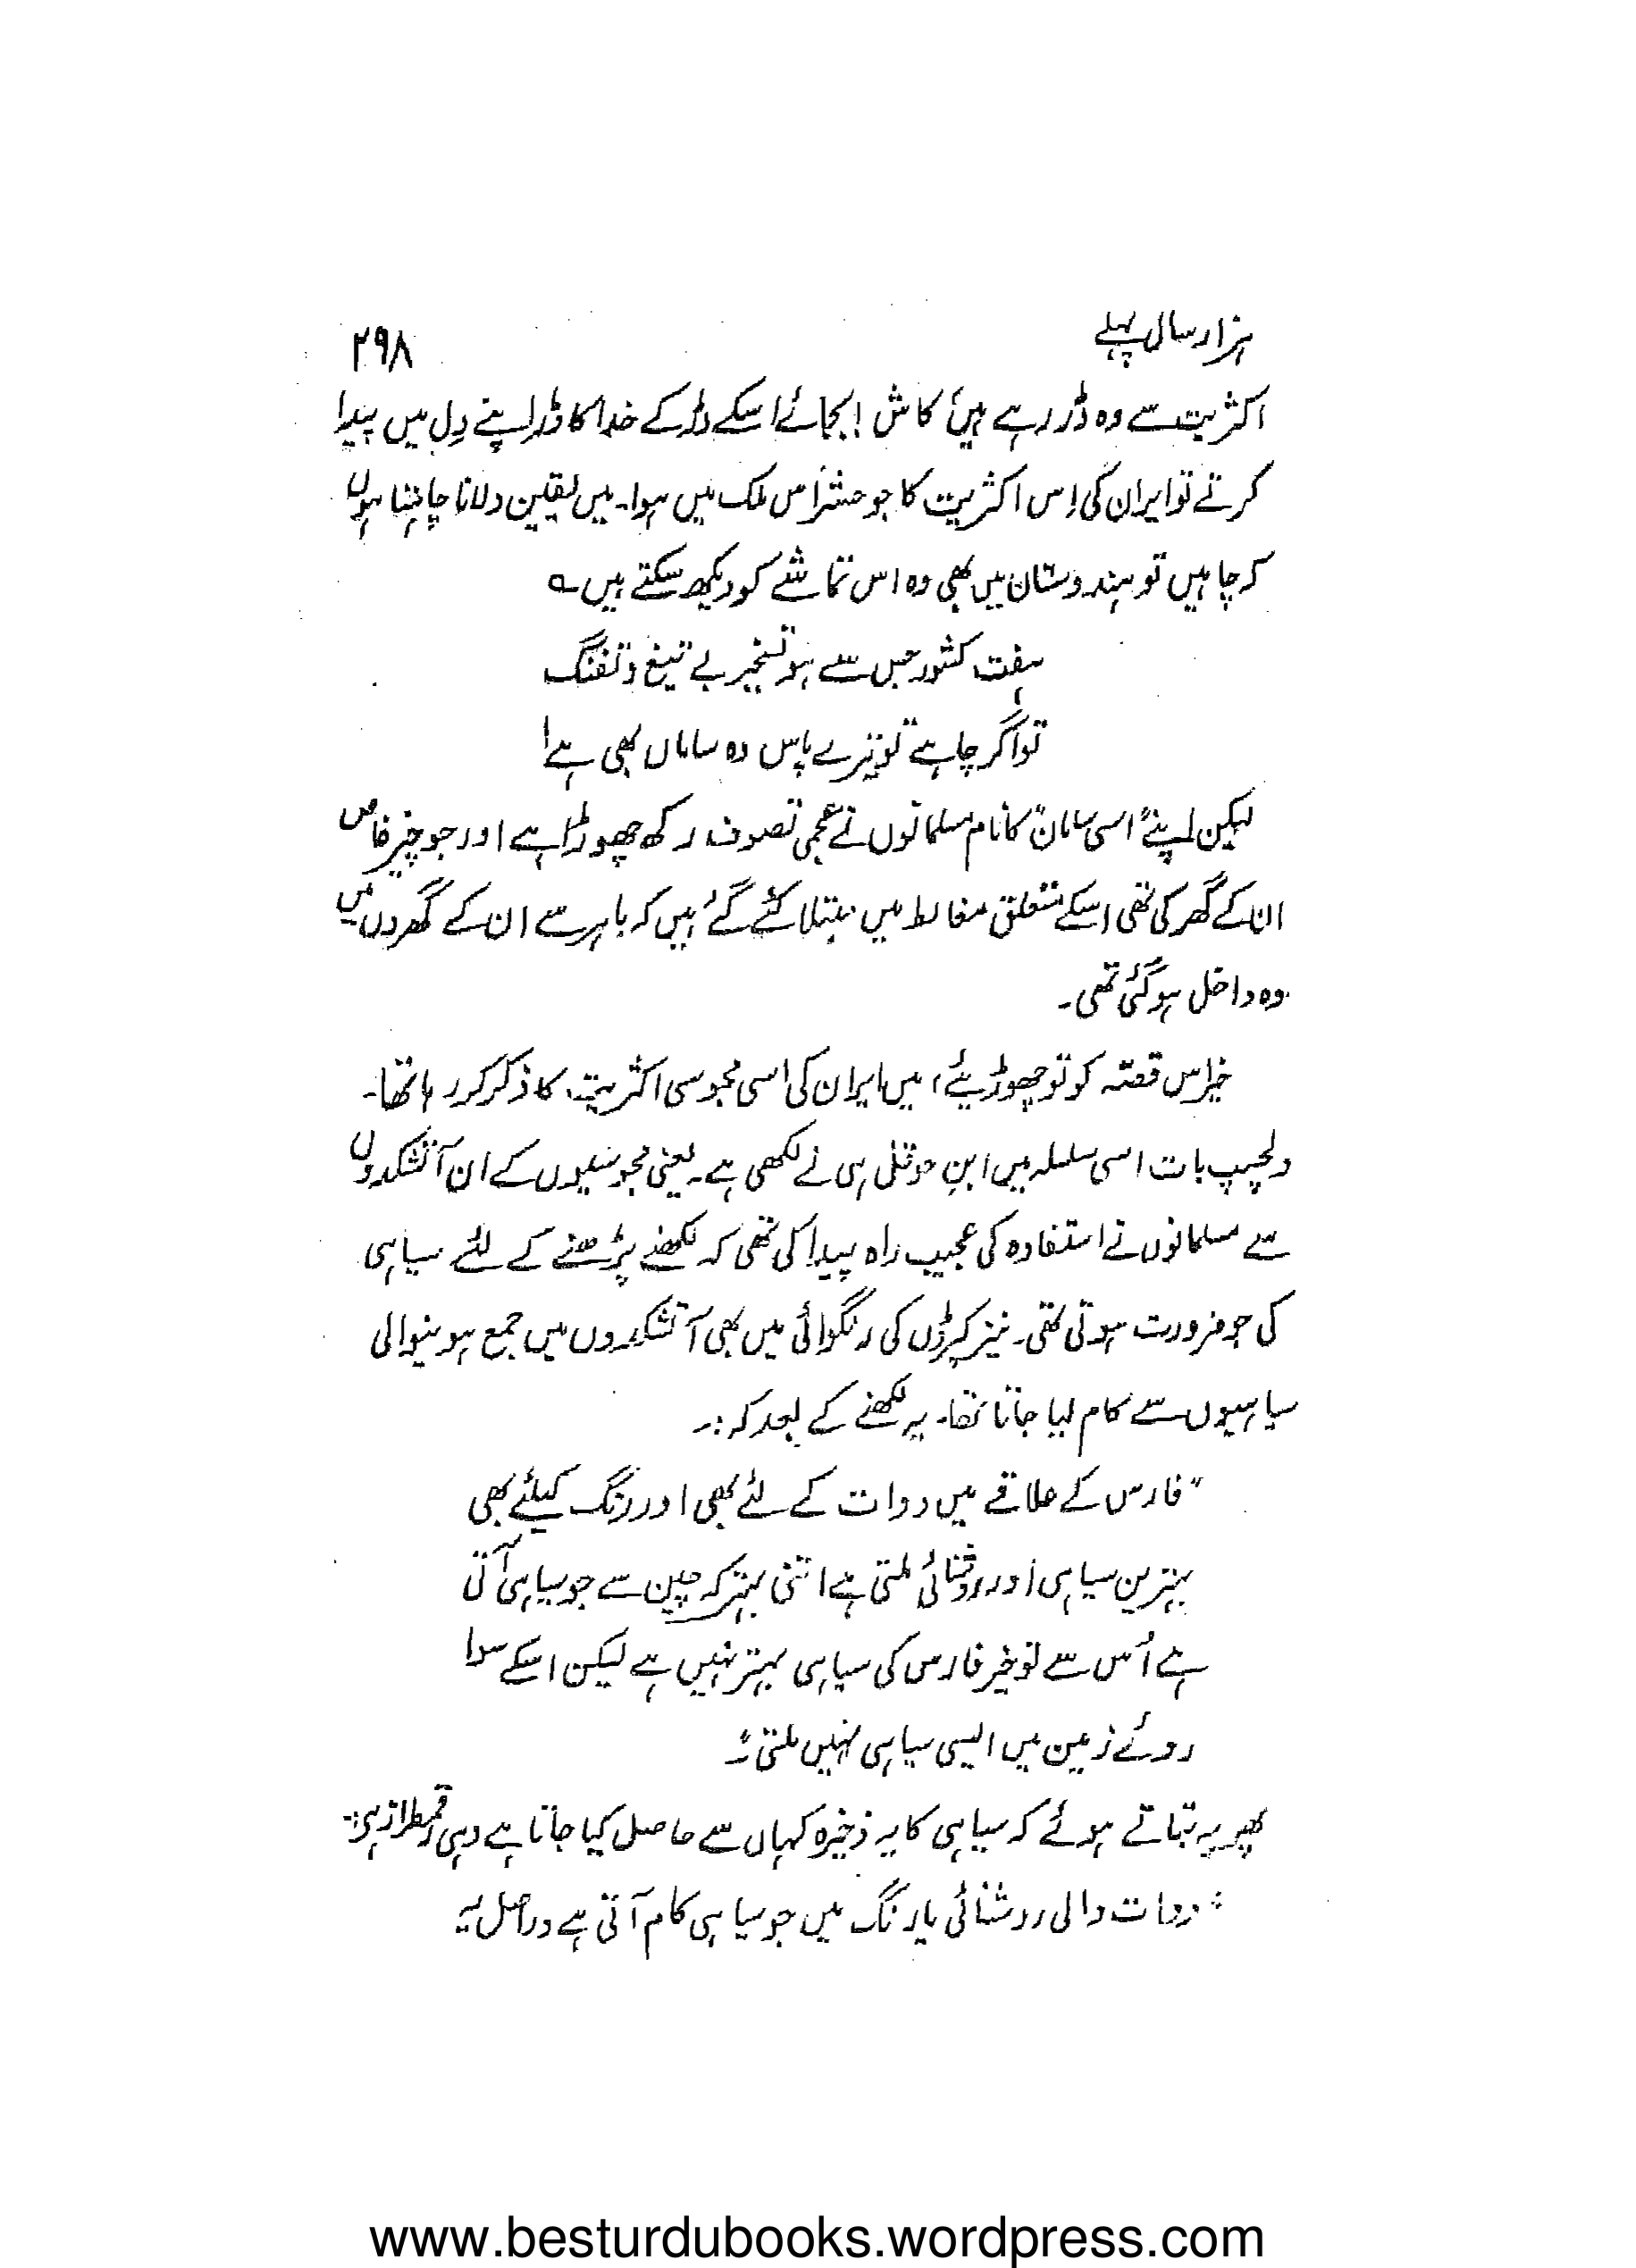 ہزار سال پہلے
۲۹۸
اکثریت سے وہ ڈر رہے ہیں، کاش! بجائے اسکے ڈر کے خدا کا ڈر اپنے دِل میں پیدا
کرتے تو ایران کی اِس اکثریت کا جو حشر اس ملک میں ہوا۔ میں یقین دلانا چاہتا ہوں
کہ چاہیں تو ہندوستان میں بھی وہ اس تماشے کو دیکھ سکتے ہیں ؎
ہفت کشور جس سے ہو تسخیر بے تیغ و تفنگ
تو اگر چاہے تو تیرے پاس وہ ساماں بھی ہے!
لیکن اپنے "اسی سامان" کا نام مسلمانوں نے عجمی تصوف رکھ چھوڑا ہے اور جو چیز خاص
ان کے گھر کی تھی اسکے متعلق مغالطہ میں مبتلا کئے گئے ہیں کہ باہر سے ان کے گھروں میں
وہ داخل ہوگئی تھی۔
خیر اس قصّہ کو تو چھوڑیئے، میں ایران کی اسی مجوسی اکثریت کا ذکر کر رہا تھا۔
دلچسپ بات اسی سلسلہ میں ابنِ حوقل ہی نے لکھی ہے۔ یعنی مجوسیوں کے ان آتشکدوں
سے مسلمانوں نے استفادہ کی عجیب راہ پیدا کی تھی کہ لکھنے پڑھنے کے لئے سیاہی
کی جو ضرورت ہوتی تھی۔ نیز کپڑوں کی رنگوائی میں بھی آتشکدوں میں جمع ہونیوالی
سیاہیوں سے کام لیا جاتا تھا۔ یہ لکھنے کے بعد کہ :۔
"فارس کے علاقے میں دوات کے لئے بھی اور رنگ کیلئے بھی
بہترین سیاہی اور روشنائی ملتی ہے اتنی بہتر کہ چین سے جو سیاہی آتی
ہے اُس سے تو خیر فارس کی سیاہی بہتر نہیں ہے لیکن اسکے سوا
روئے زمین میں ایسی سیاہی نہیں ملتی"۔
پھر یہ بتاتے ہوئے کہ سیاہی کا یہ ذخیرہ کہاں سے حاصل کیا جاتا ہے وہی رقمطراز ہیں:-
"دوات والی روشنائی یا رنگ میں جو سیاہی کام آتی ہے دراصل یہ
www.besturdubooks.wordpress.com